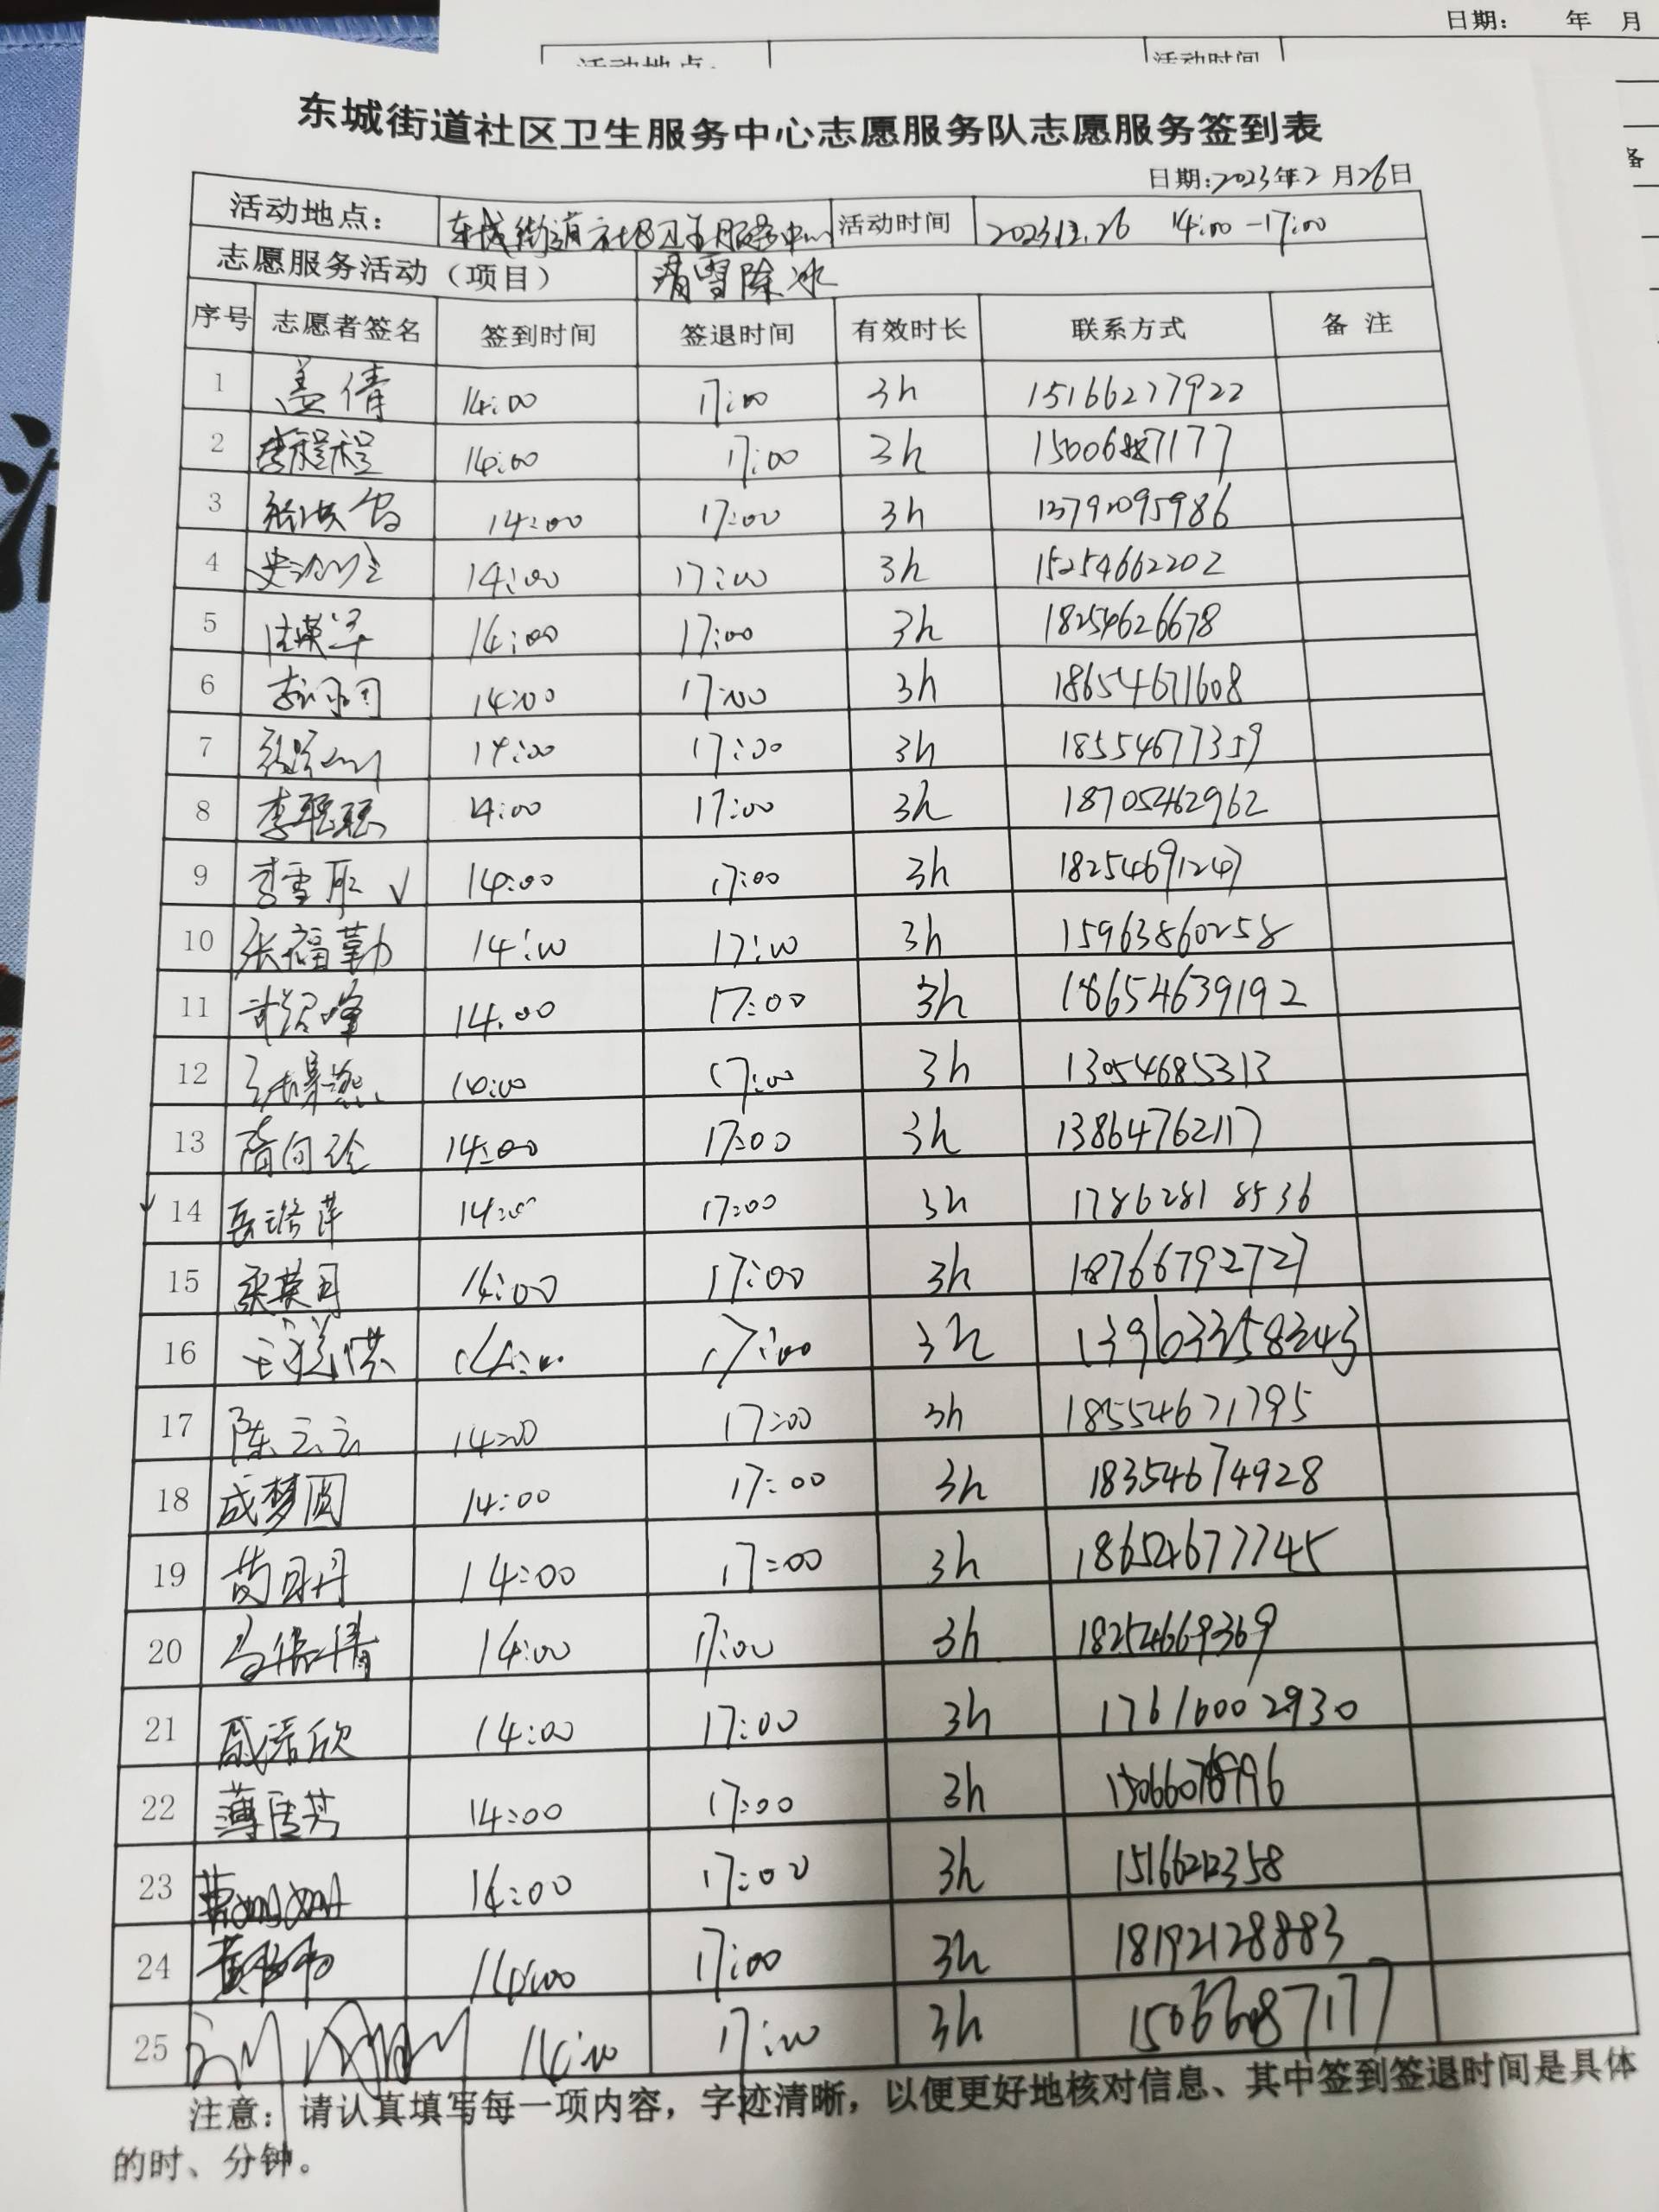 日期： 年 月
活动时间
东城街道社区卫生服务中心志愿服务队志愿服务签到表
日期:2023年2月26日
活动地点： 东城街道社区卫生服务中心 活动时间 2023.12.26 14:00-17:00
志愿服务活动（项目） 清雪除冰
序号 志愿者签名 签到时间 签退时间 有效时长 联系方式 备 注
1 盖倩 14:00 17:00 3h 15166277922
2 李程程 14:00 17:00 3h
3 14:00 17:00 3h 13792095986
4 14:00 17:00 3h 15254662202
5 14:00 17:00 3h 18254626678
6 14:00 17:00 3h 18654671608
7 14:00 17:00 3h 18554677359
8 李聪聪 14:00 17:00 3h 18705462962
9 李雪 14:00 17:00 3h 18254691247
10 张福勤 14:00 17:00 3h 15963860258
11 14:00 17:00 3h 18654639192
12 17:00 3h 13054685313
13 隋向 14:00 17:00 3h 13864762117
14 14:00 17:00 3h 1786281 8536
15 14:00 17:00 3h 18766792727
16 14:00 17:00 3h
17 陈云云 14:00 17:00 3h 18554671795
18 成梦圆 14:00 17:00 3h 18354674928
19 14:00 17:00 3h 18654677745
20 14:00 17:00 3h 18254669369
21 14:00 17:00 3h 17616002930
22 14:00 17:00 3h
23 14:00 17:00 3h
24 14:00 17:00 3h 18192128883
25 14:00 17:00 3h
注意：请认真填写每一项内容，字迹清晰，以便更好地核对信息、其中签到签退时间是具体
的时、分钟。